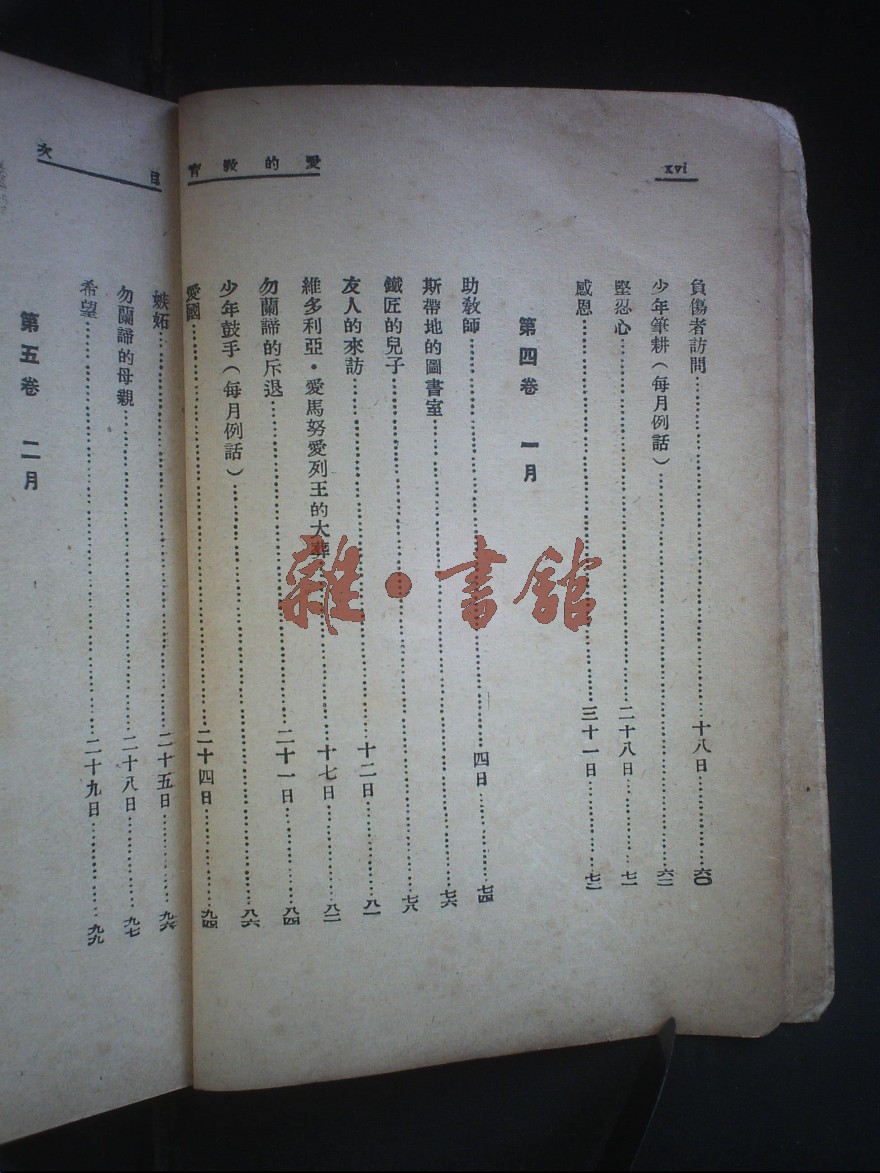 xvi
愛的教育
負傷者訪問……十八日……六〇
少年筆耕（每月例話）……六二
堅忍心……二十八日……七一
感恩……三十一日……七二
第四卷 一月
助教師……四日……七四
斯帶地的圖書室……七六
鐵匠的兒子……七八
友人的來訪……十二日……八一
維多利亞・愛馬努愛列王的大葬……十七日……八二
勿蘭諦的斥退……二十一日……八四
少年鼓手（每月例話）……八六
愛國……二十四日……九四
目次
嫉妬……二十五日……九六
勿蘭諦的母親……二十八日……九七
希望……二十九日……九九
第五卷 二月
雜・書館